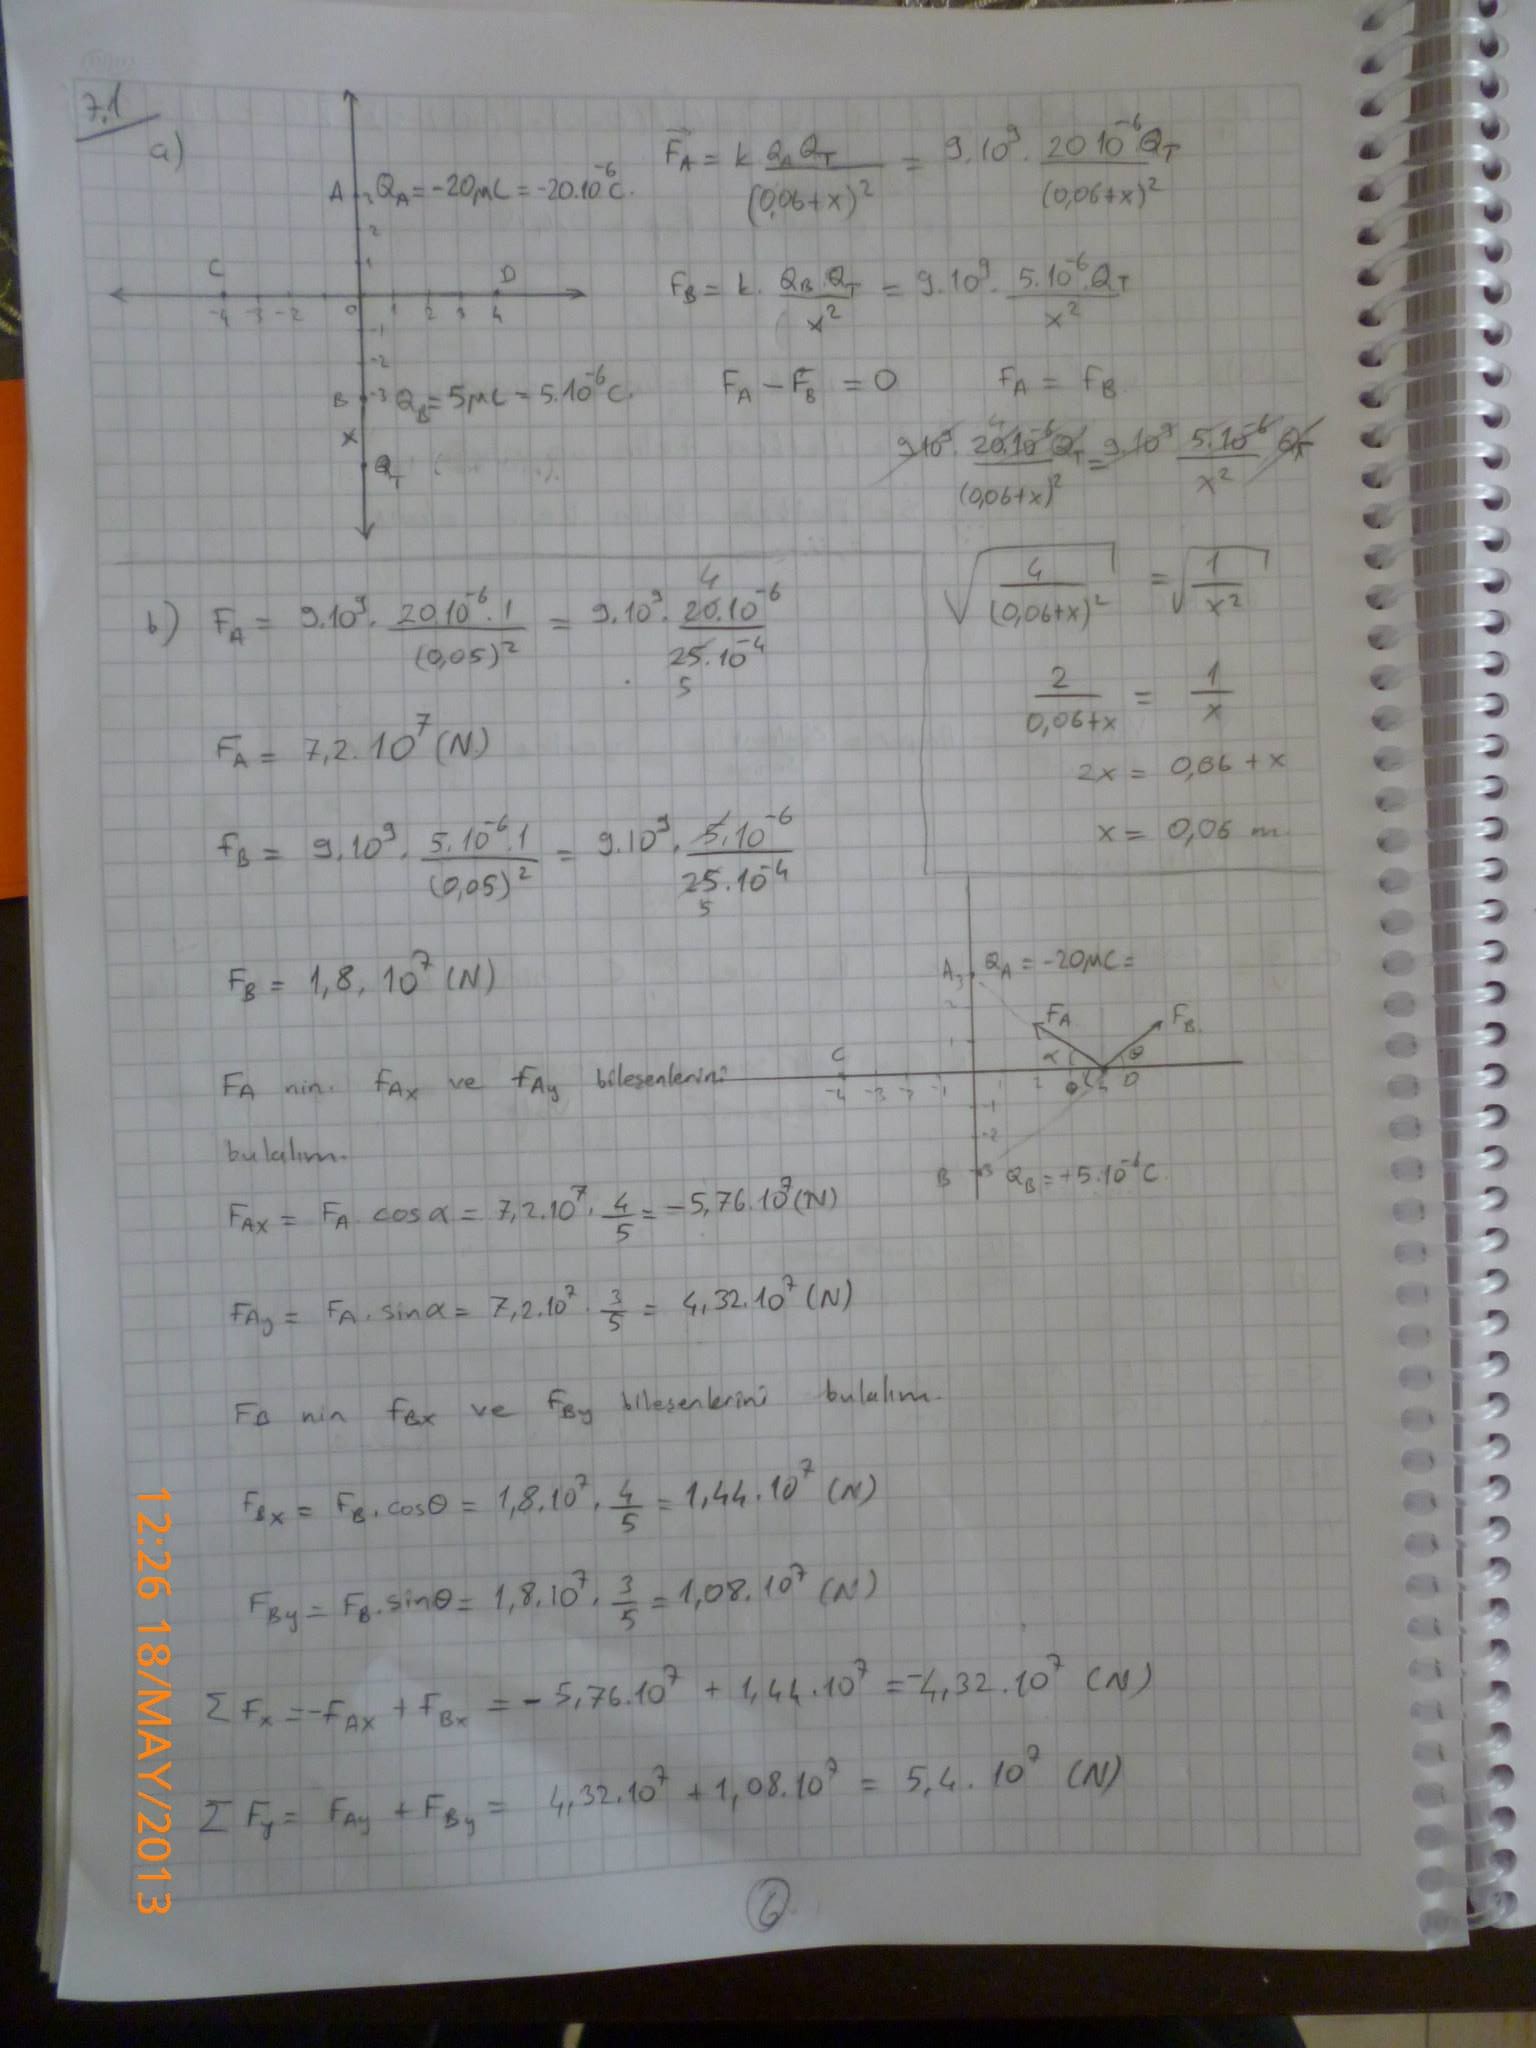 7.1
a)
A 3 Q_A = -20μC = -20.10^-6 C.
2
1
C D
-4 -3 -2 0 1 2 3 4
-1
-2
B -3 Q_B = 5μC = 5.10^-6 C.
x
Q_T
F_A = k Q_A Q_T / (0,06+x)^2 = 9.10^9 . 20 10^-6 Q_T / (0,06+x)^2
F_B = k. Q_B.Q_T / x^2 = 9.10^9 . 5.10^-6.Q_T / x^2
F_A - F_B = 0 F_A = F_B
9.10^9 . 20.10^-6 Q_T / (0,06+x)^2 = 9.10^9 5.10^-6 / x^2 Q_T
4
√(4 / (0,06+x)^2) = √(1 / x^2)
2 / 0,06+x = 1 / x
2x = 0,06 + x
x = 0,06 m
b) F_A = 9.10^9 . 20.10^-6 . 1 / (0,05)^2 = 9.10^9 . 20.10^-6 / 25.10^-4
4
5
F_A = 7,2.10^7 (N)
F_B = 9.10^9 . 5.10^-6.1 / (0,05)^2 = 9.10^9 . 5.10^-6 / 25.10^-4
5
F_B = 1,8.10^7 (N)
A 3 Q_A = -20μC =
2
F_A F_B
1
α θ
C
-4 -3 -2 -1 1 2 θ 4 D
-1
-2
B -3 Q_B = +5.10^-6 C
F_A nın. F_Ax ve F_Ay bileşenlerini
bulalım.
F_Ax = F_A cosα = 7,2.10^7 . 4/5 = -5,76.10^7 (N)
F_Ay = F_A . sinα = 7,2.10^7 . 3/5 = 4,32.10^7 (N)
F_B nin F_Bx ve F_By bileşenlerini bulalım.
F_Bx = F_B.cosθ = 1,8.10^7 . 4/5 = 1,44.10^7 (N)
F_By = F_B.sinθ = 1,8.10^7 . 3/5 = 1,08.10^7 (N)
Σ F_x = -F_Ax + F_Bx = - 5,76.10^7 + 1,44.10^7 = -4,32.10^7 (N)
Σ F_y = F_Ay + F_By = 4,32.10^7 + 1,08.10^7 = 5,4. 10^7 (N)
6
12:26 18/MAY/2013